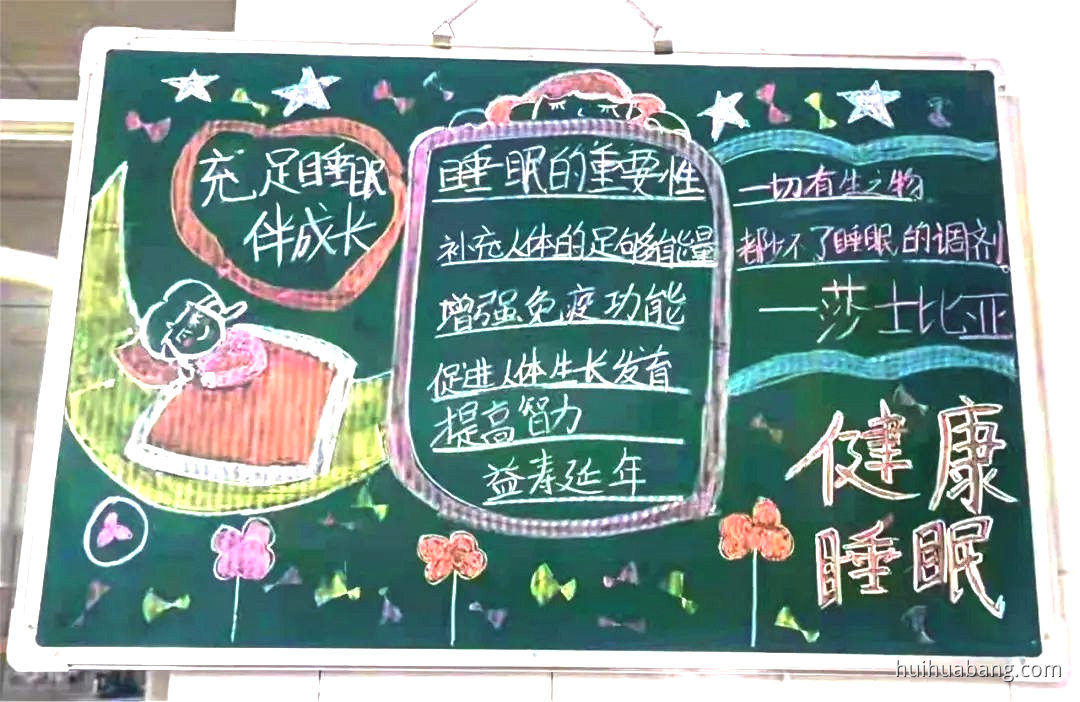 充足睡眠
伴成长
睡眠的重要性
补充人体的足够能量
增强免疫功能
促进人体生长发育
提高智力
益寿延年
一切有生之物
都少不了睡眠的调剂。
一莎士比亚
健康
睡眠
huihuabang.com